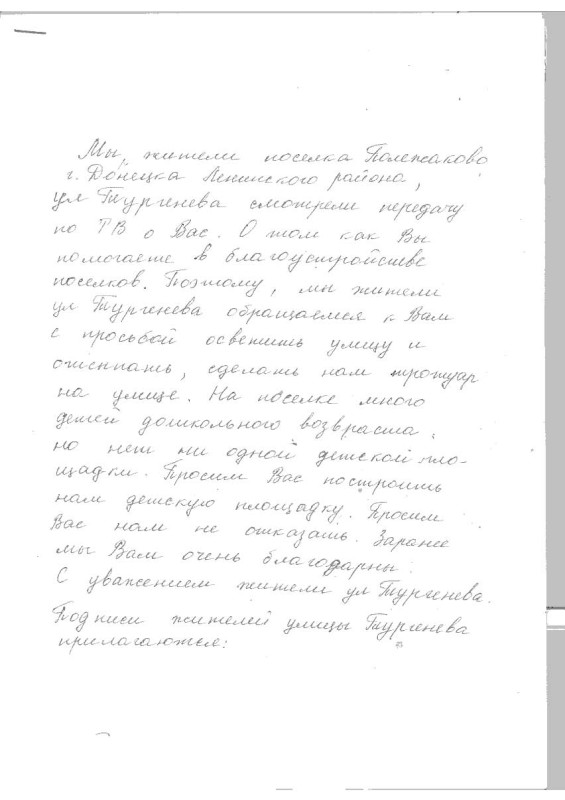 Мы, жители поселка Полежаково
г. Донецка Ленинского района,
ул Тургенева смотрели передачу
по ТВ о Вас. О том как Вы
помогаете в благоустройстве
поселков. Поэтому, мы жители
ул Тургенева обращаемся к Вам
с просьбой осветить улицу и
отсыпать, сделать нам тротуар
на улице. На поселке много
детей дошкольного возвраста,
но нет ни одной детской пло-
щадки. Просим Вас построить
нам детскую площадку. Просим
Вас нам не отказать. Заранее
мы Вам очень благодарны.
С уважением жители ул Тургенева.
Подписи жителей улицы Тургенева
прилагаются: